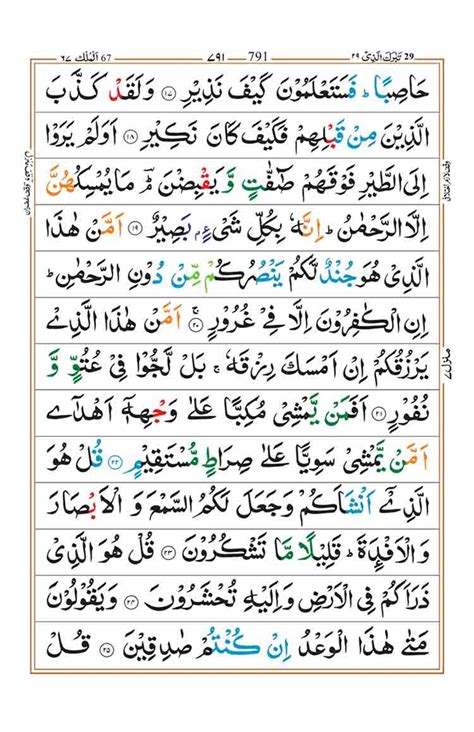 29 تَبٰرَكَ الَّذِىْ ٢٩ 791 ٧٩١ 67 اَلْمُلْك ٦٧
حَاصِبًا ؕ فَسَتَعْلَمُوْنَ كَيْفَ نَذِيْرِ ﴿۱۷﴾ وَلَقَدْ كَذَّبَ
الَّذِيْنَ مِنْ قَبْلِهِمْ فَكَيْفَ كَانَ نَكِيْرِ ﴿۱۸﴾ اَوَلَمْ يَرَوْا
اِلَى الطَّيْرِ فَوْقَهُمْ صٰٓفّٰتٍ وَّيَقْبِضْنَ ؔۘ مَا يُمْسِكُهُنَّ
اِلَّا الرَّحْمٰنُ ؕ اِنَّهٗ بِكُلِّ شَىْءٍۢ بَصِيْرٌ ﴿۱۹﴾ اَمَّنْ هٰذَا
الَّذِىْ هُوَ جُنْدٌ لَّكُمْ يَنْصُرُكُمْ مِّنْ دُوْنِ الرَّحْمٰنِ ؕ
اِنِ الْكٰفِرُوْنَ اِلَّا فِىْ غُرُوْرٍ ۚ ﴿۲۰﴾ اَمَّنْ هٰذَا الَّذِىْ
يَرْزُقُكُمْ اِنْ اَمْسَكَ رِزْقَهٗ ۚ بَلْ لَّجُّوْا فِىْ عُتُوٍّ وَّ
نُفُوْرٍ ﴿۲۱﴾ اَفَمَنْ يَّمْشِىْ مُكِبًّا عَلٰى وَجْهِهٖۤ اَهْدٰٓى
اَمَّنْ يَّمْشِىْ سَوِيًّا عَلٰى صِرَاطٍ مُّسْتَقِيْمٍ ﴿۲۲﴾ قُلْ هُوَ
الَّذِىْۤ اَنْشَاَكُمْ وَجَعَلَ لَكُمُ السَّمْعَ وَ الْاَبْصَارَ
وَالْاَفْـِٕدَةَ ؕ قَلِيْلًا مَّا تَشْكُرُوْنَ ﴿۲۳﴾ قُلْ هُوَ الَّذِىْ
ذَرَاَكُمْ فِى الْاَرْضِ وَاِلَيْهِ تُحْشَرُوْنَ ﴿۲۴﴾ وَيَقُوْلُوْنَ
مَتٰى هٰذَا الْوَعْدُ اِنْ كُنْتُمْ صٰدِقِيْنَ ﴿۲۵﴾ قُلْ